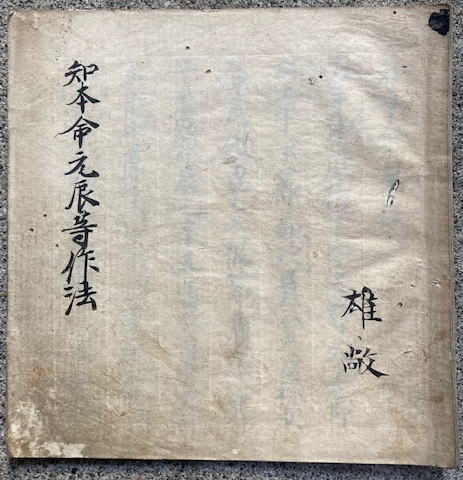 知本命元辰等作法
雄敞